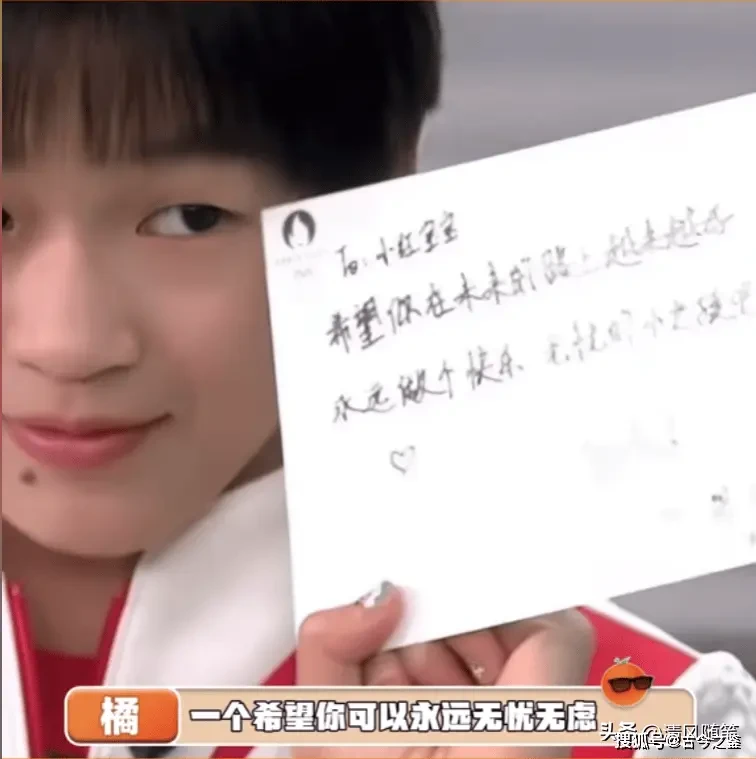 To: 小红宝宝
希望你在未来的路上越来越好
永远做个快乐无忧的小
♡
橘
一个希望你可以永远无忧无虑
头条 @清风随笔
搜狐号@古今之鉴